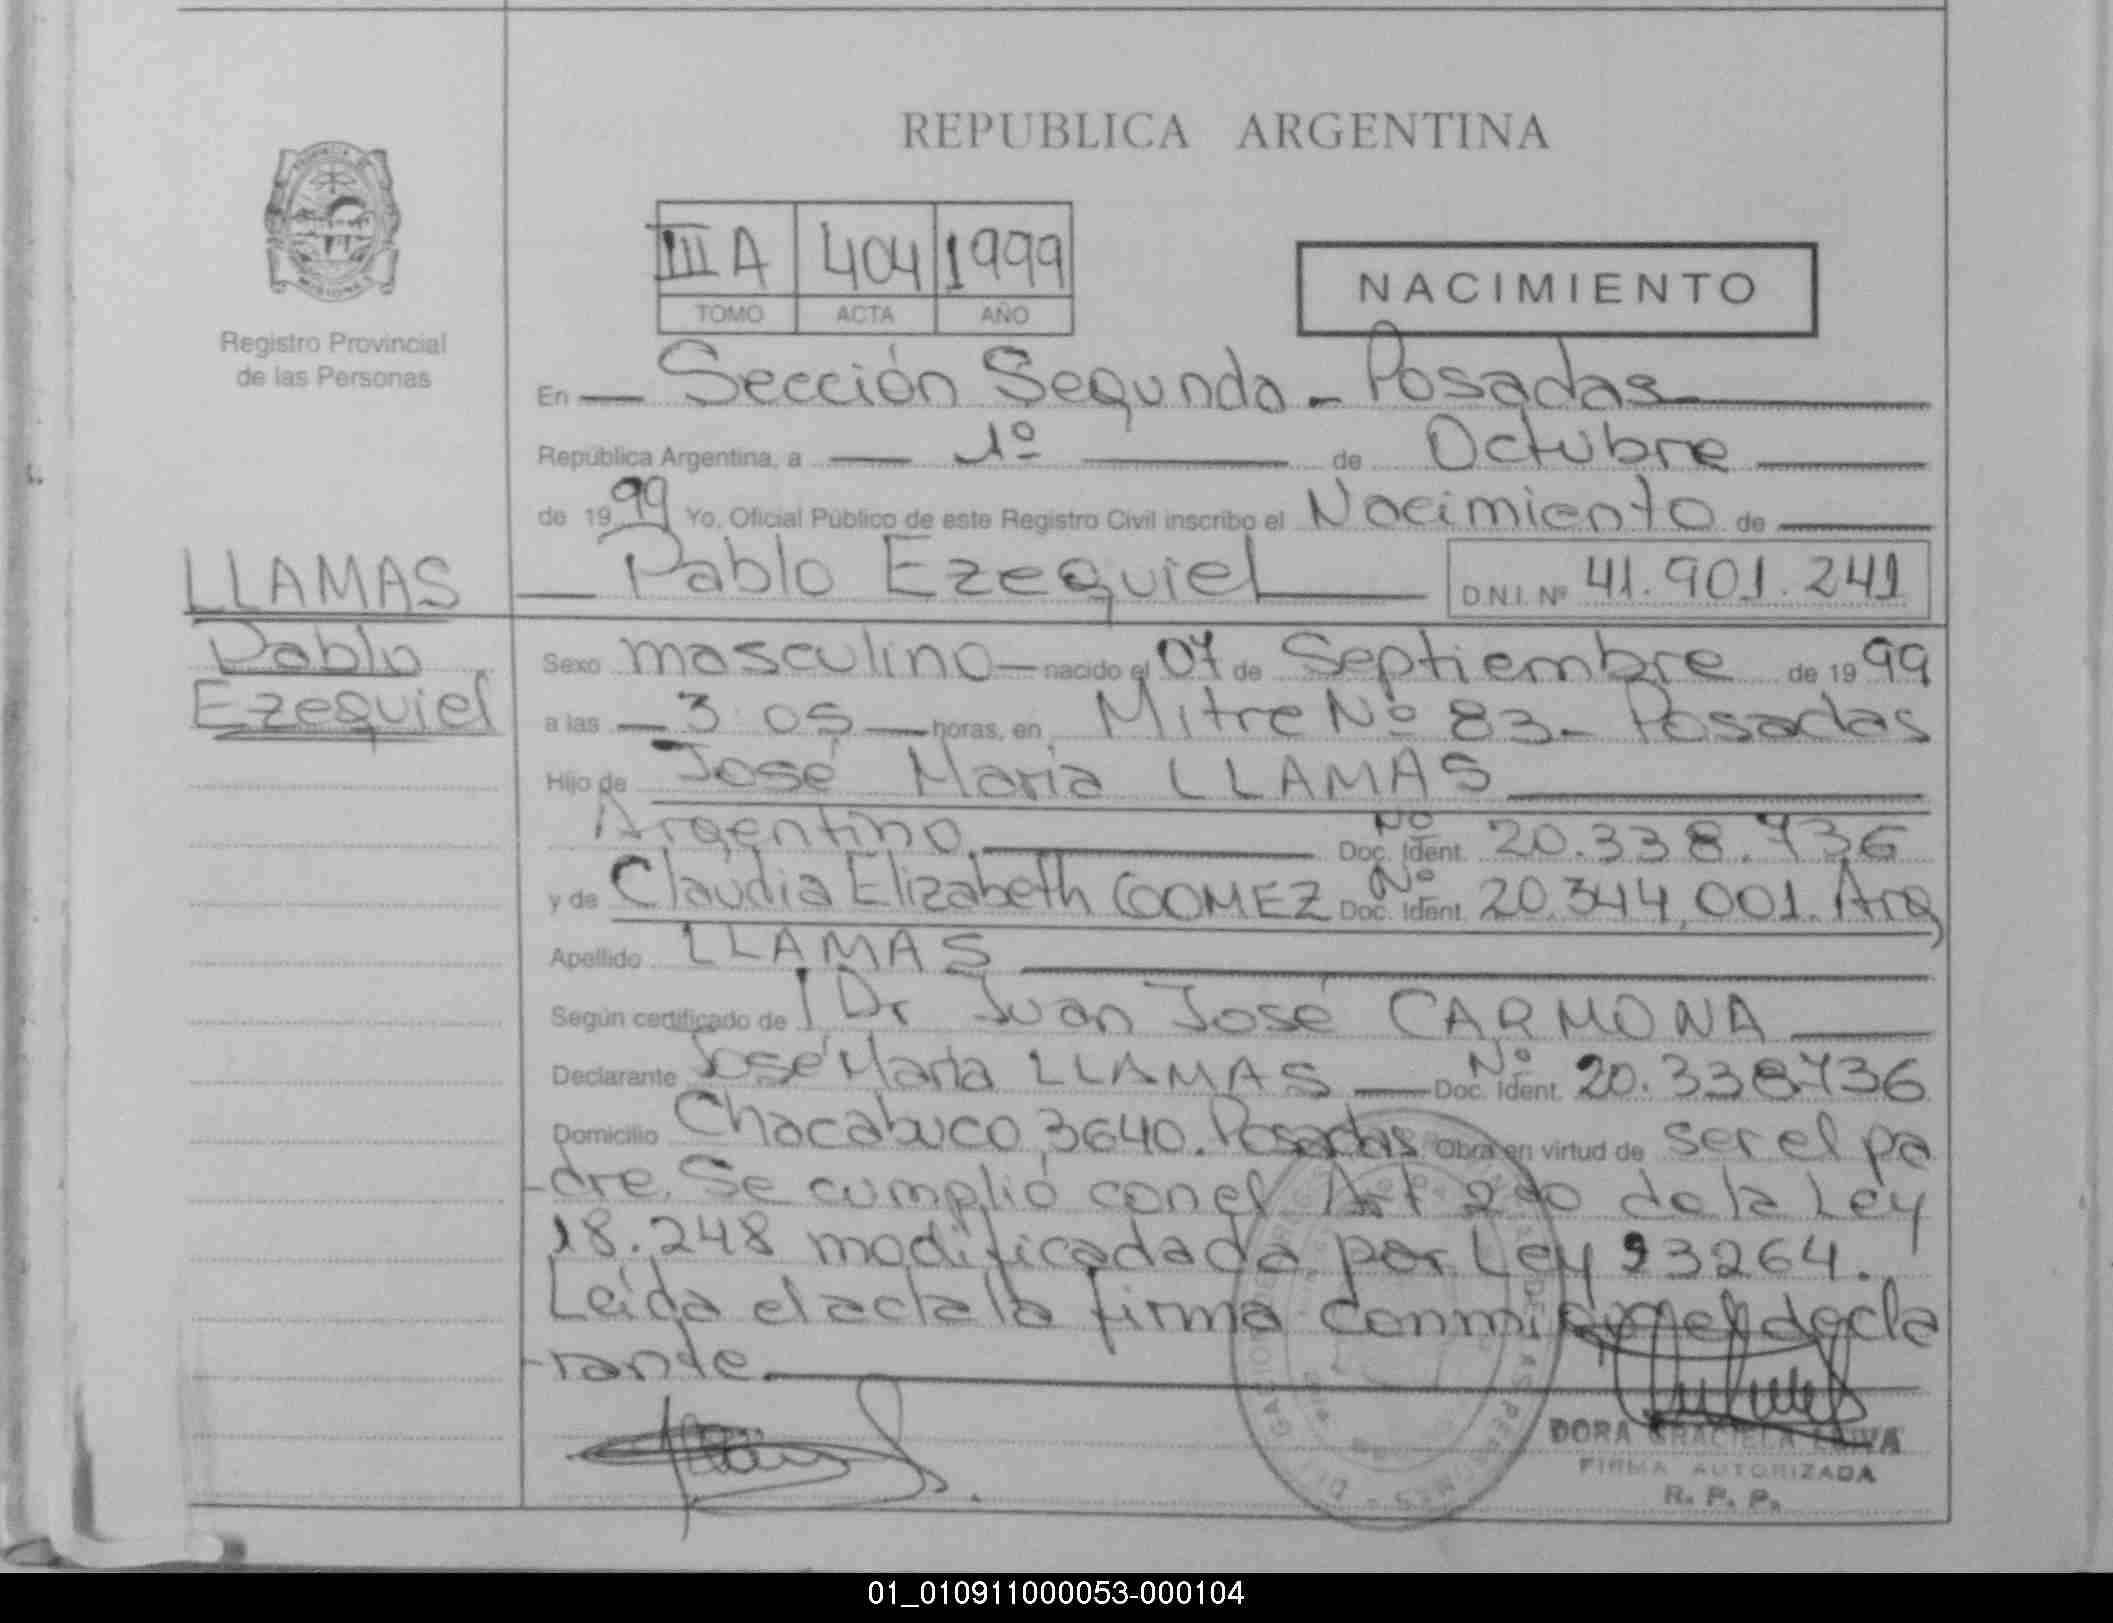 REPUBLICA ARGENTINA
III A 404 1999
TOMO ACTA AÑO
NACIMIENTO
Registro Provincial
de las Personas
En Sección Segunda - Posadas
República Argentina, a 1º de Octubre
de 1999 Yo, Oficial Público de este Registro Civil inscribo el Nacimiento de
LLAMAS
Pablo
Ezequiel
Pablo Ezequiel D.N.I. Nº 41.901.241
Sexo masculino nacido el 07 de Septiembre de 1999
a las 3:05 horas, en Mitre Nº 83 - Posadas
Hijo de José Maria LLAMAS
Argentino Doc. Ident. Nº 20.338.736
y de Claudia Elizabeth GOMEZ Doc. Ident. Nº 20.344.001. Arg
Apellido LLAMAS
Según certificado de Dr Juan José CARMONA
Declarante José Maria LLAMAS Doc. Ident. Nº 20.338736
Domicilio Chacabuco 3640. Posadas Obra en virtud de ser el pa
-dre. Se cumplió con el Art 2do de la Ley
18.248 modificadada por Ley 23264.
Leída el acta la firma conmigo el decla
-rante.
DORA GRACIELA
FIRMA AUTORIZADA
R. P. P.
01_010911000053-000104